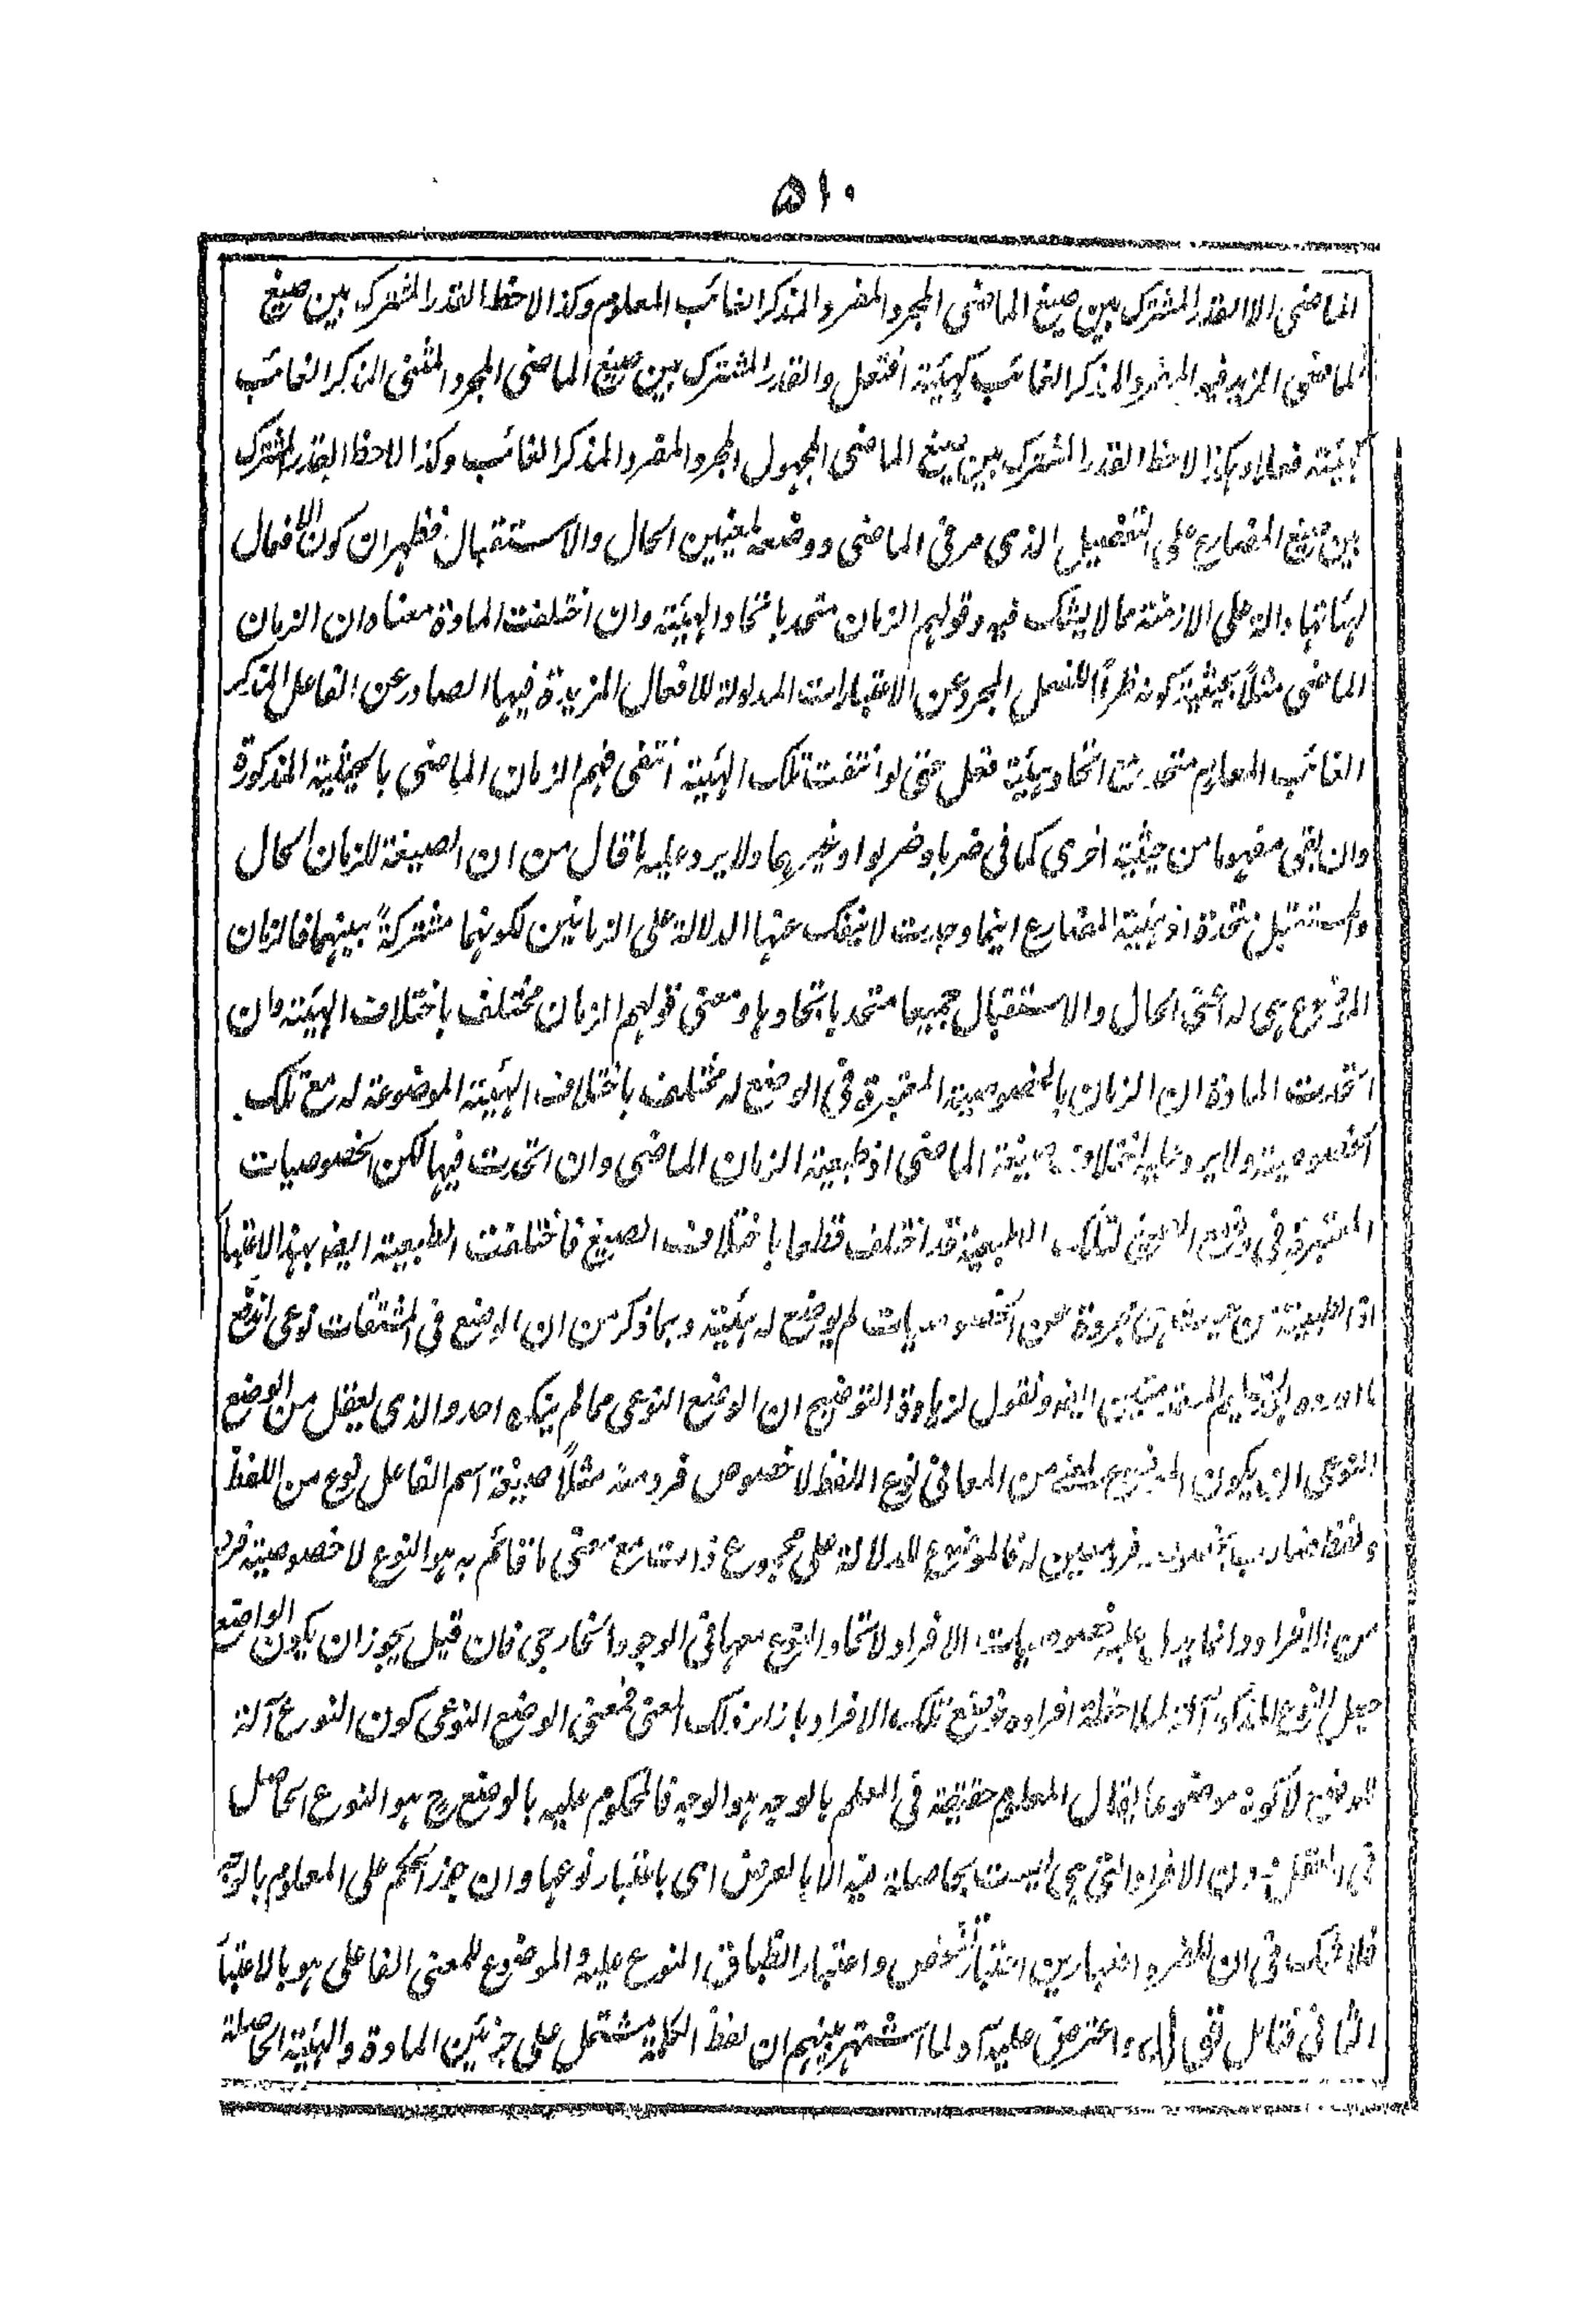 ۵۱۰
الماضى الا القدر المشترك بين صيغ الماضى المجرد المفرد المذكر الغائب المعلوم وكذا لاحظ القدر المشترك بين صيغ
الماضى المزيد فيه المفرد المذكر الغائب كهيئة افتعل والقدر المشترك بين صيغ الماضى المجرد المثنى المذكر الغائب
كهيئة فعلا وهكذا لاحظ القدر المشترك بين صيغ الماضى المجهول المجرد المفرد المذكر الغائب وكذا لاحظ القدر المشترك
بين صيغ المضارع على التفصيل الذى مر فى الماضى ووضعه لمعنيين الحال والاستقبال فظهر ان كون الافعال
لهيئاتها دالة على الازمنة مما لا يشك فيه وقولهم الزمان متحد باتحاد الهيئة وان اختلفت المادة معناه ان الزمان
الماضى مثلاً بحيثية كونه ظرفاً للفعل المجرد عن الاعتبارات المدلولة للافعال المزيدة فيها الصادر عن الفاعل المذكر
الغائب المعلوم متحد اتحاد هيئة فعل حتى لو انتفت تلك الهيئة انتفى فهم الزمان الماضى بالحيثية المذكورة
وان بقى مفهوما من حيثية اخرى كما فى ضربا وضربوا وغيرهما ولا يرد عليه ما قال من ان الصيغة للزمان الحال
والمستقبل متحدة اذ هيئة المضارع اينما وجدت لا ينفك عنها الدلالة على الزمانين لكونهما مشتركةً بينهما فالزمان
الموضوع هى له أعنى الحال والاستقبال جميعا متحد باتحادها ومعنى قولهم الزمان مختلف باختلاف الهيئة وان
اتحدت المادة ان الزمان بالخصوصية المعتبرة فى الوضع له مختلف باختلاف الهيئة الموضوعة له مع تلك
الخصوصية ولا يرد عليه اختلاف صيغة الماضى اذ طبيعة الزمان الماضى وان اتحدت فيها لكن الخصوصيات
المعتبرة فى وضع الصيغ لتلك الطبيعة قد اختلف قطعا باختلاف الصيغ فاختلفت الطبيعة ايضا بهذا الاعتبار
اذ الطبيعة من حيث هى مجردة عن الخصوصيات لم يوضع له هيئة وبما ذكر من ان الوضع فى المشتقات نوعى اندفع
ما اورده المتقين ايضا ونقول لزيادة التوضيح ان الوضع النوعى مما لم ينكره احد والذى يعقل من الوضع
النوعى ان يكون الموضوع لمعنى من المعانى نوع اللفظ لا خصوص فرد منه مثلاً صيغة اسم الفاعل نوع من اللفظ
ولفظ ضارب بخصوصه فرد معين له فالموضوع للدلالة على مجموع ذات مع معنى ما قائم به هو النوع لا خصوصية فرد
من الافراد وانما يدل عليه خصوصيات الافراد لاتحاد النوع معها فى الوجود الخارجى فان قيل يجوز ان يكون الواضع
جعل النوع المذكور آلة لملاحظة افراده فوضع تلك الافراد بازاء ذلك المعنى فمعنى الوضع النوعى كون النوع آلة
للوضع لا كونه موضوعا يقال المعلوم حقيقة فى العلم بالوجه هو الوجه فالمحكوم عليه بالوضع ح هو النوع الحاصل
فى العقل دون الافراد التى هى ليست بحاصلة فيه الا بالعرض اى باعتبار نوعها وان جوز الحكم على المعلوم بالوجه
فلا شك فى ان للفرد اعتبارين اعتبار تشخص واعتبار انطباق النوع عليه والموضوع للمعنى الفاعلى هو بالاعتبار
الثانى فتامل قوله واعترض عليه آه لما اشتهر بينهم ان لفظ الكلمة مشتمل على جزئين المادة والهيئة الحاصلة